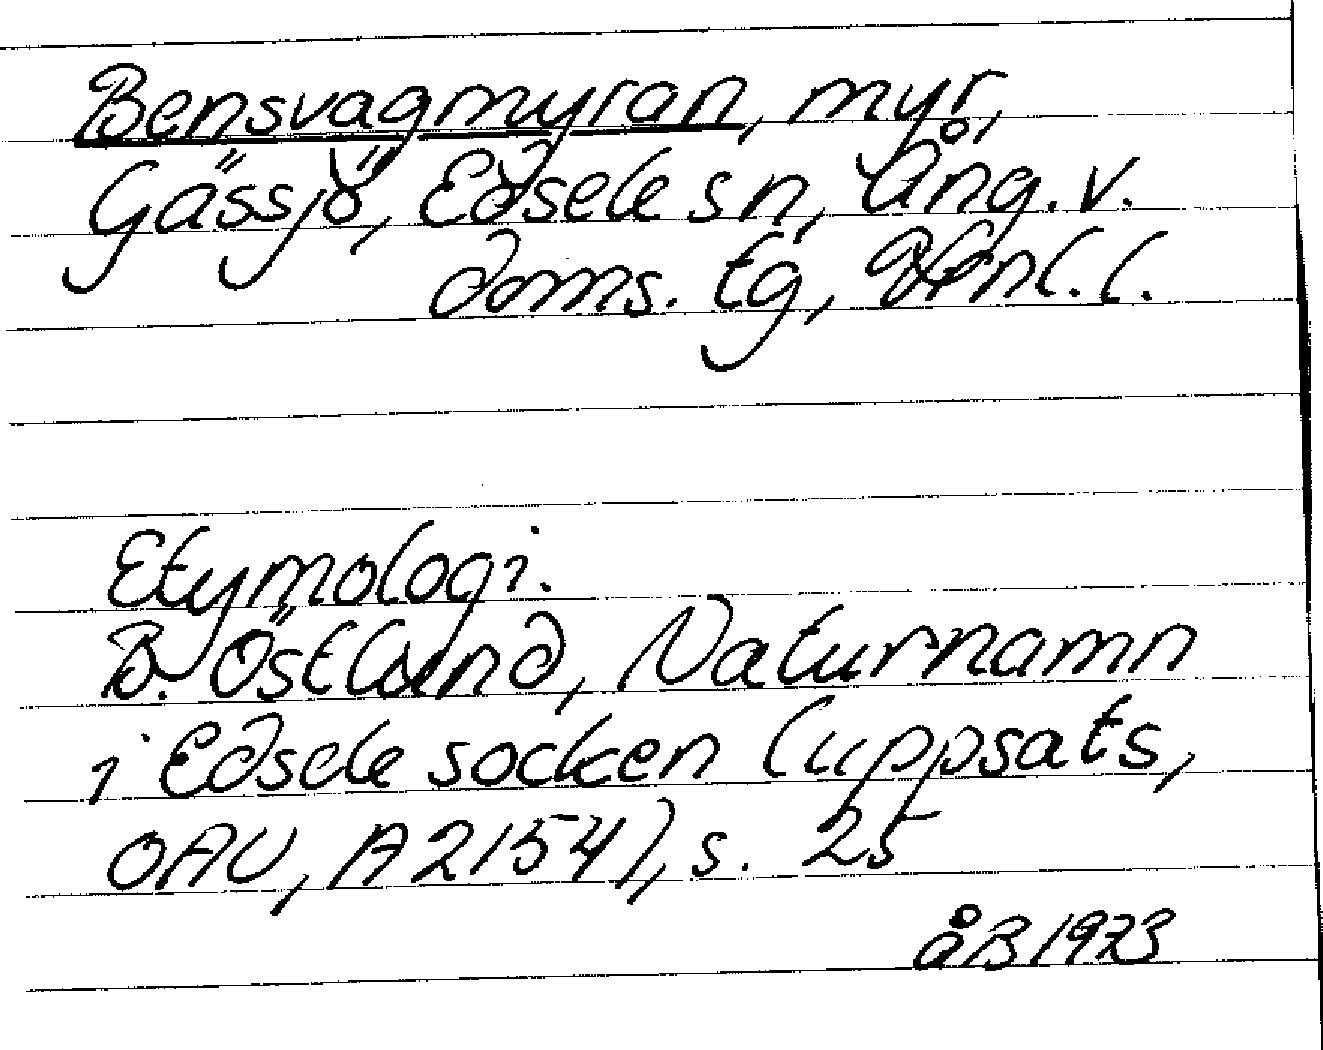 Bensvagmyran, myr,
Gässjö, Edsele sn, Ång. v.
doms. tg, Vbnl. l.
Etymologi.
B. Östlund, Naturnamn
i Edsele socken (uppsats,
OAU, A 2154), s. 25
åB 1973